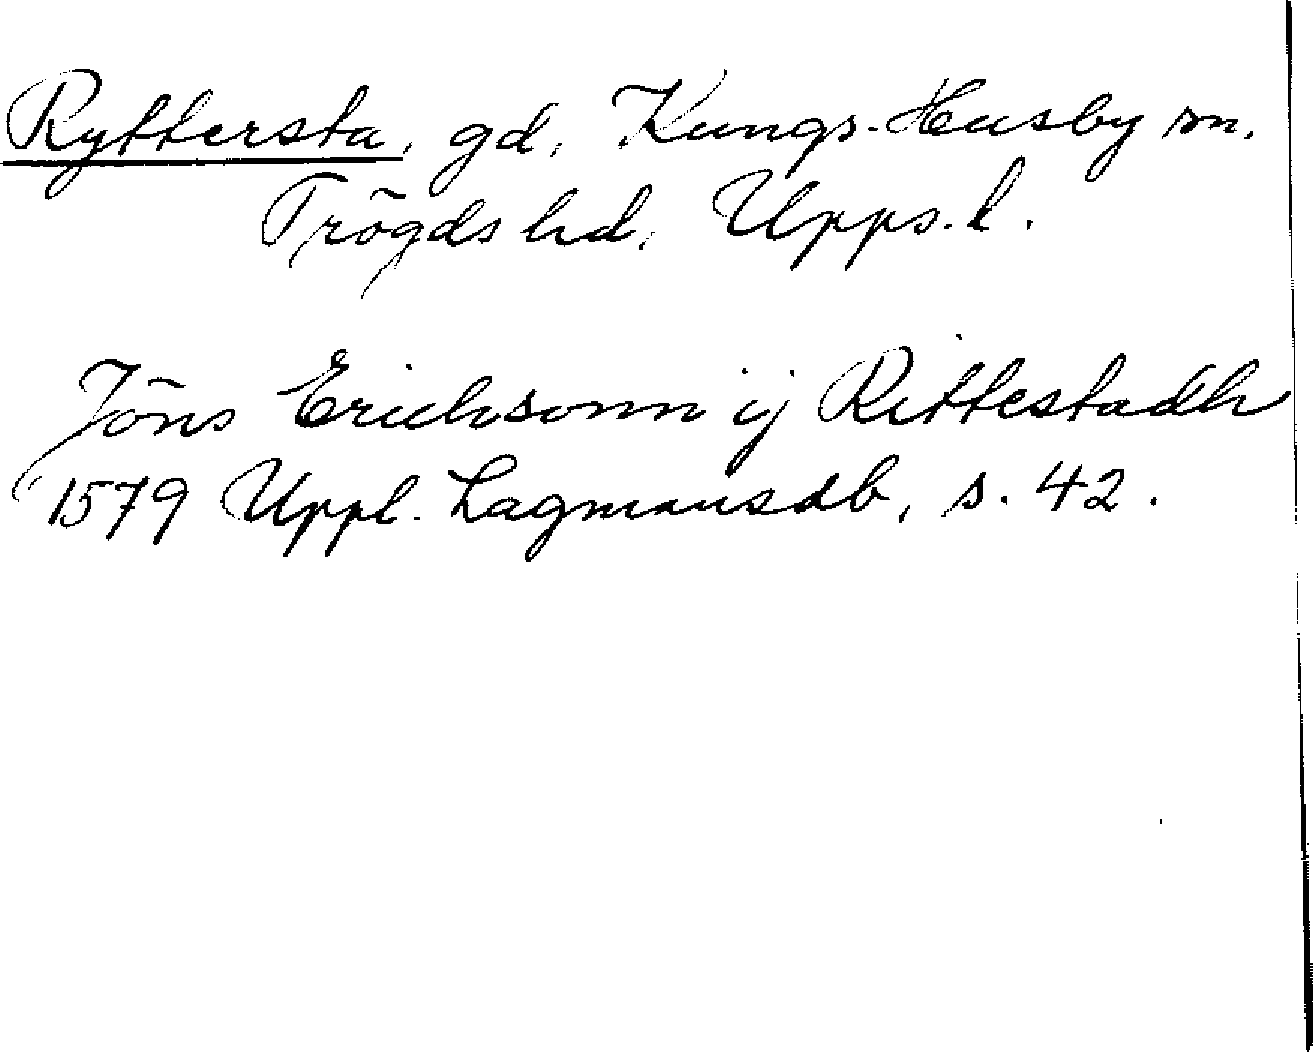 Ryttersta, gd, Kungs-Husby sn.
Trögds hd, Upps. l.
Jöns Erichsonn ij Rittestadh
1579 Uppl. Lagmansdb, s. 42.